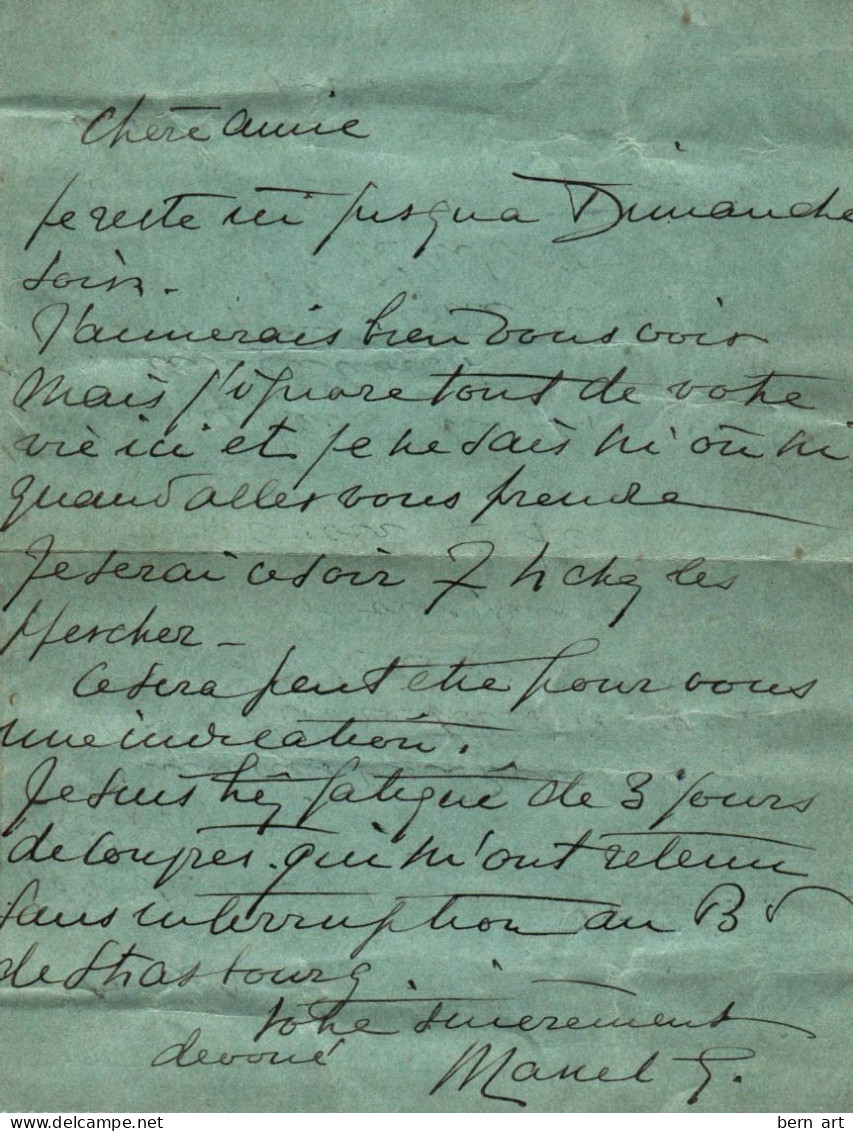 Chère amie
Je reste ici jusqua Dimanche
soir.
J'aimerais bien vous voir
Mais j'ignore tout de votre
vie ici et je ne sais ni où ni
quand aller vous prendre
Je serai ce soir 7 h chez les
Hescher -
Ce sera peut etre pour vous
une indication.
Je suis très fatigué de 3 jours
de congrès. qui m'ont retenu
sans interruption au Bd
de Strasbourg.
Votre sincèrement
devoué Marcel G.
bern art